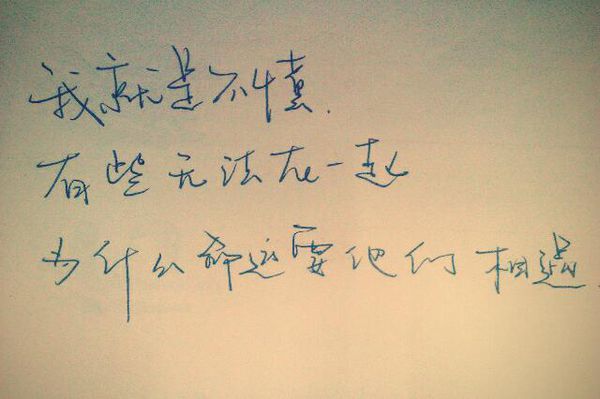 我就是不懂.
有些无法在一起
为什么命运要他们相遇.